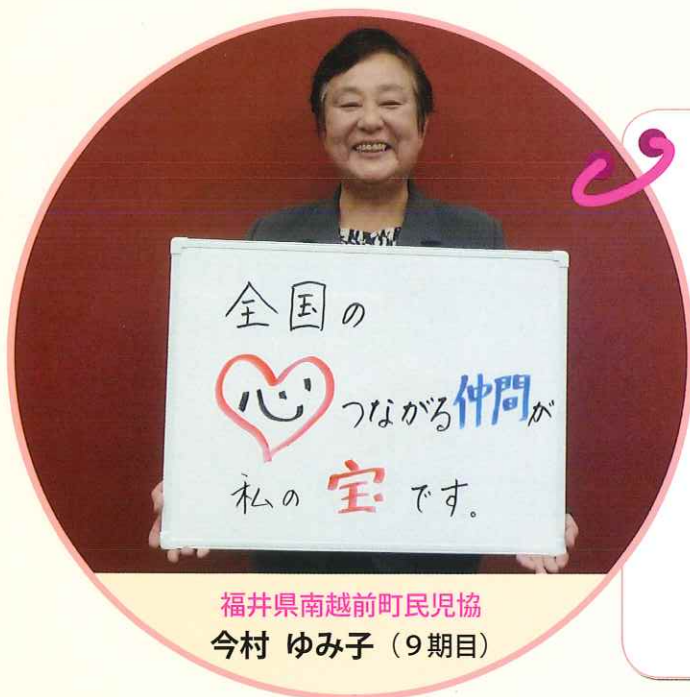 全国の
心つながる仲間が
私の宝です。
福井県南越前町民児協
今村 ゆみ子（９期目）